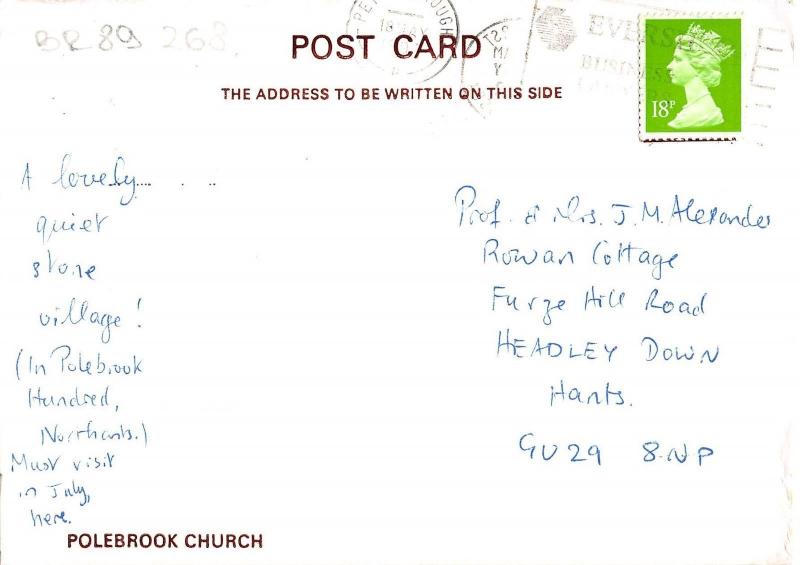 BR89 268
POST CARD
THE ADDRESS TO BE WRITTEN ON THIS SIDE
18P
A lovely
quiet
stone
village!
(In Polebrook
Hundred,
Northants.)
Must visit
in July,
here.
Prof. & Mrs. J.M. Alexander
Rowan Cottage
Furze Hill Road
HEADLEY DOWN
Hants.
GU29 8NP
POLEBROOK CHURCH